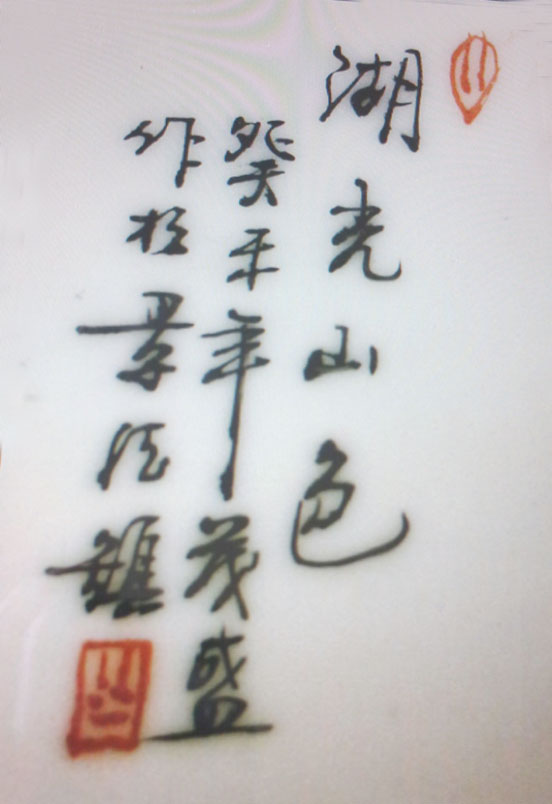 湖光山色
癸未年茂盛
作於景德鎮